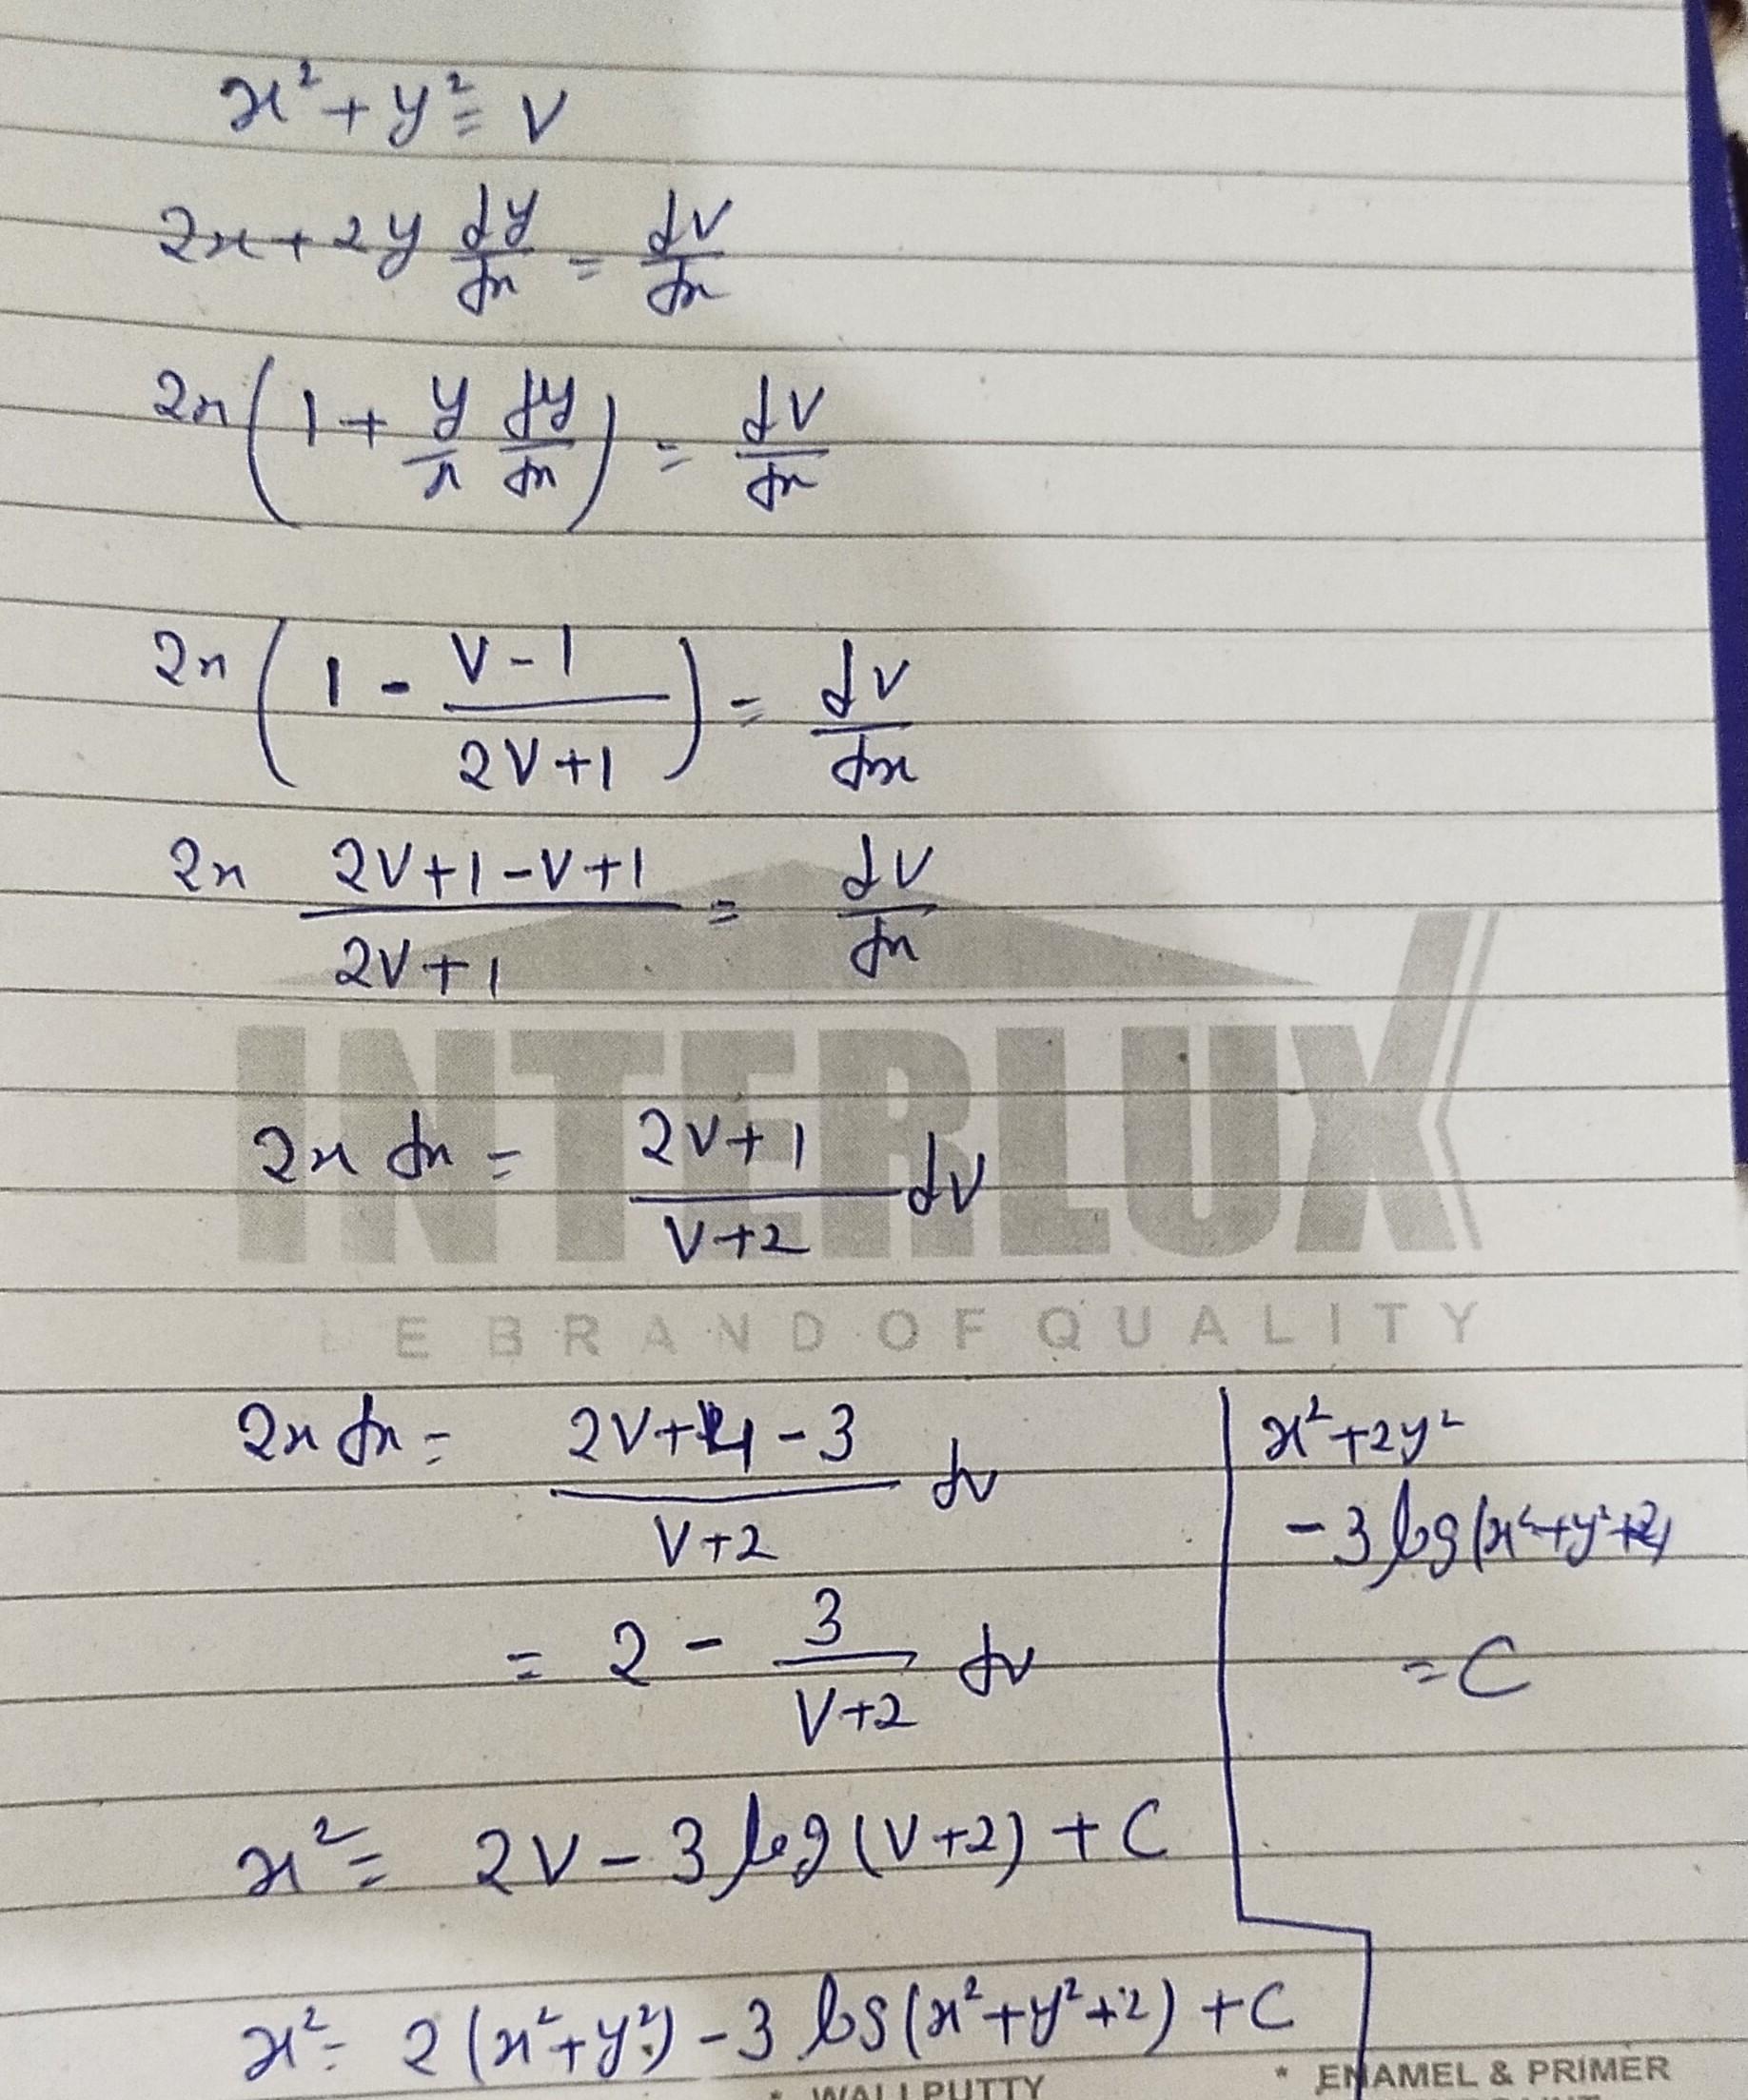 x² + y² = V
2x + 2y dy/dx = dV/dx
2x(1 + y/x dy/dx) = dV/dx
2x(1 - (V-1)/(2V+1)) = dV/dx
2x (2V+1-V+1)/(2V+1) = dV/dx
INTERLUX
2x dx = (2V+1)/(V+2) dV
E BRAND OF QUALITY
2x dx = (2V+4-3)/(V+2) dV
= 2 - 3/(V+2) dV
x² = 2V - 3 log(V+2) + C
x² = 2(x²+y²) - 3 log(x²+y²+2) + C
x²+2y²
-3 log(x²+y²+2)
= C
* WALLPUTTY
* ENAMEL & PRIMER